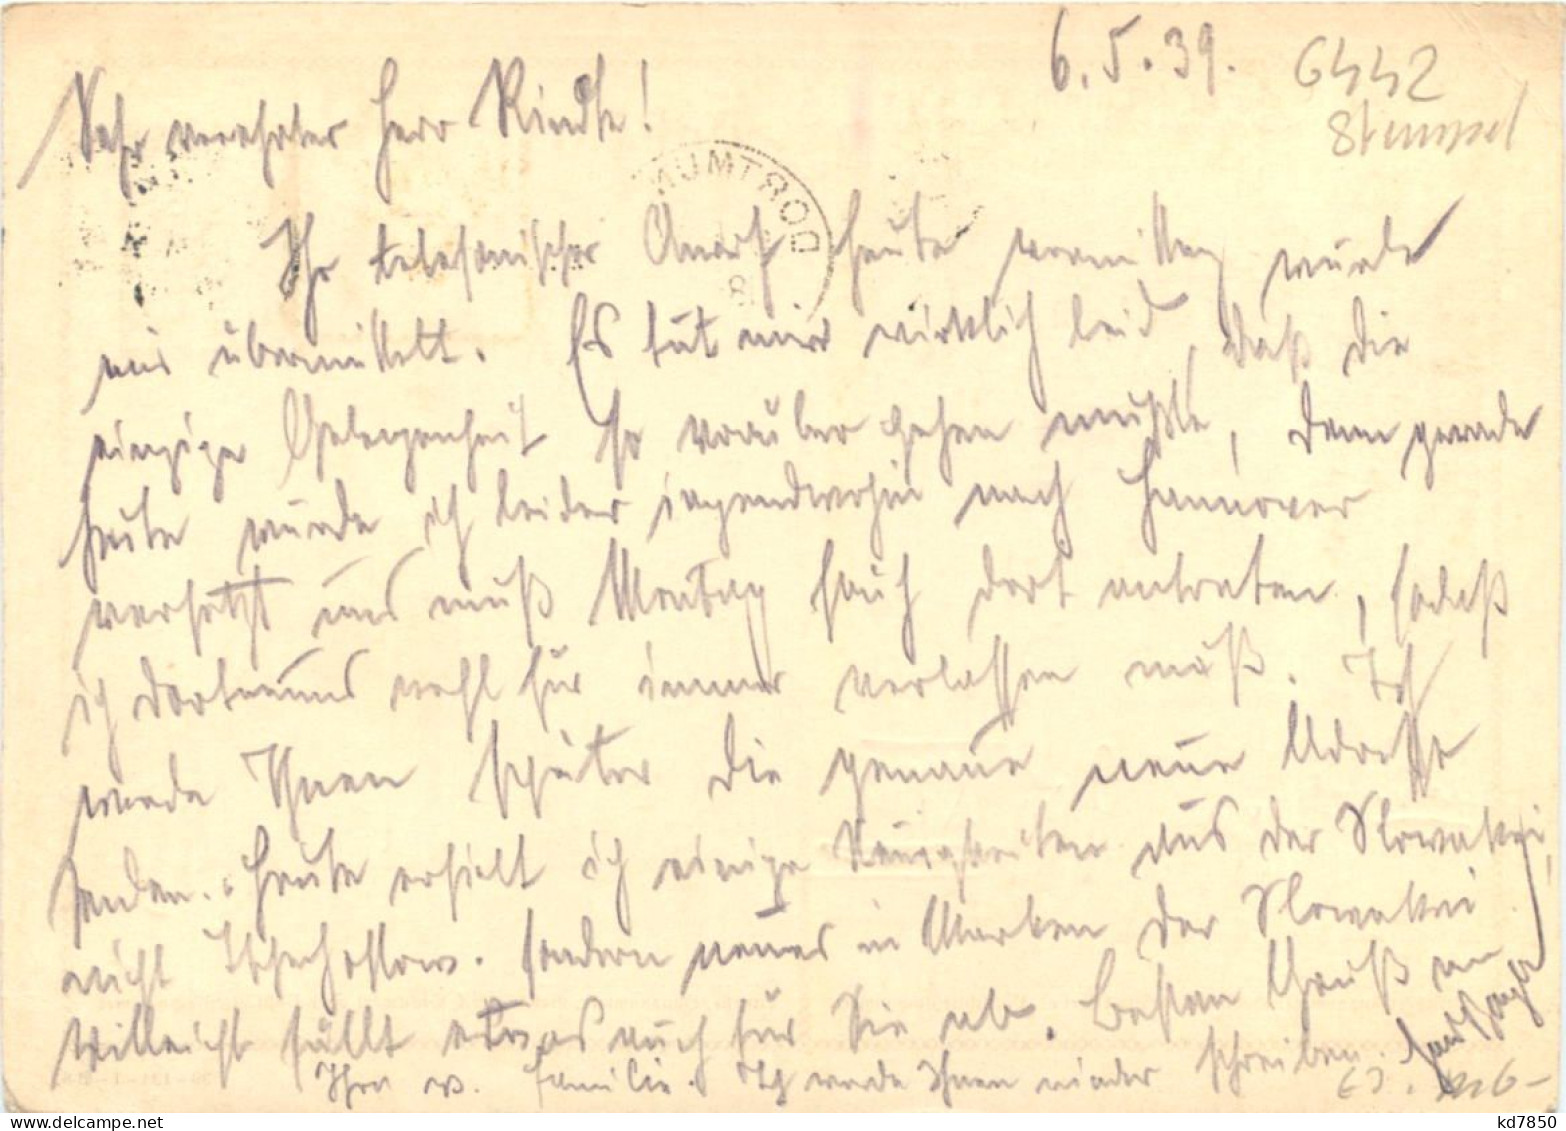 6.5.39.
6442
Stempel
Sehr verehrter Herr Rindte!
DORTMUN
8
Ihr telefonischer Anruf heute vormittag wurde
mir übermittelt. Es tut mir wirklich leid, daß die
einzige Gelegenheit so vorüber gehen mußte, denn gerade
heute wurde ich leider irgendwohin nach Hannover
versetzt und muß Montag früh dort antreten, sodaß
ich Dortmund wohl für immer verlassen muß. Ich
werde Ihnen später die genaue neue Adresse
senden. Heute erhielt ich einige Neuigkeiten aus der Slowakei,
nicht Tschechoslow. sondern neues in Marken der Slowakei
vielleicht fällt etwas auch für Sie ab. Besten Gruß an
Ihre w. Familie. Ich werde Ihnen wieder schreiben.
kd7850